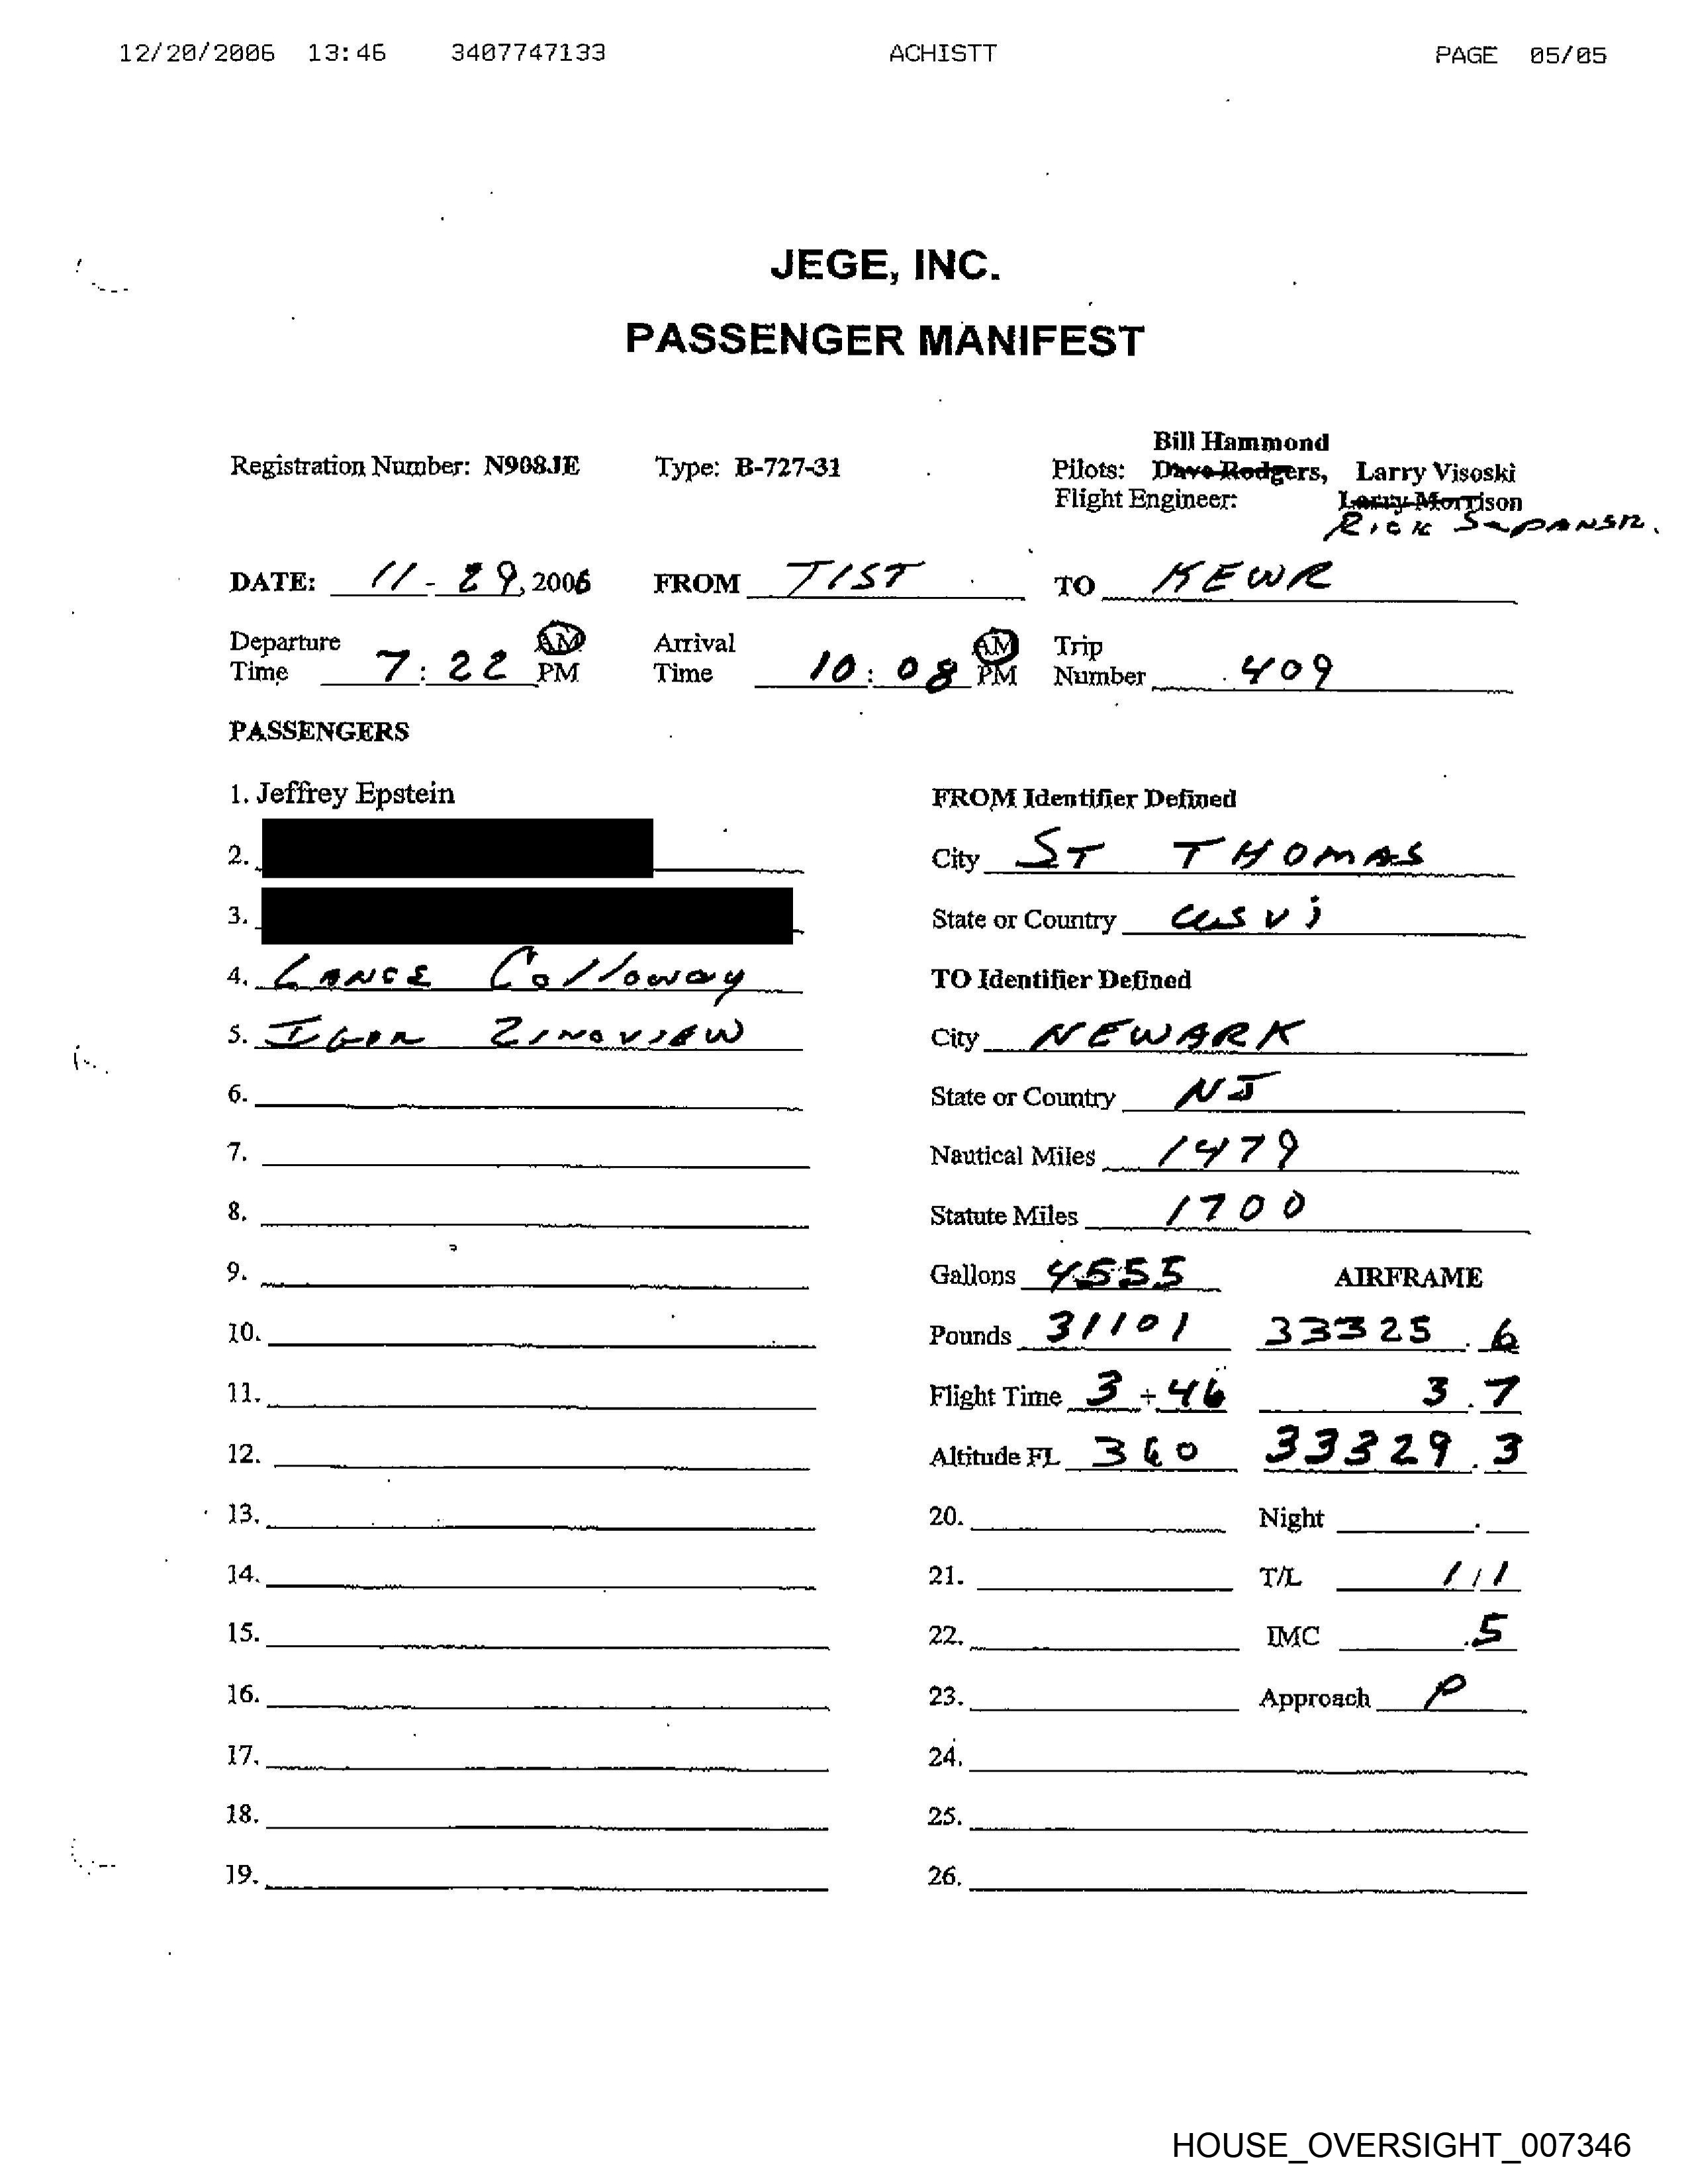 12/20/2006 13:46 3407747133 ACHISTT PAGE 05/05
JEGE, INC.
PASSENGER MANIFEST
Bill Hammond
Registration Number: N908JE Type: B-727-31 Pilots: Dave Rodgers, Larry Visoski
Flight Engineer: Larry Morrison
RICK
DATE: 11-29, 2006 FROM TIST TO KEWR
Departure Time 7:22 AM PM Arrival Time 10:08 AM PM Trip Number 409
PASSENGERS
1. Jeffrey Epstein FROM Identifier Defined
2. City ST THOMAS
3. State or Country USVI
4. LANCE Calloway TO Identifier Defined
5. IGOR ZINOVIEW City NEWARK
6. State or Country NJ
7. Nautical Miles 1479
8. Statute Miles 1700
9. Gallons 4555 AIRFRAME
10. Pounds 31101 33325.6
11. Flight Time 3+46 3.7
12. Altitude FL 360 33329.3
13. 20. Night .
14. 21. T/L 1/1
15. 22. IMC .5
16. 23. Approach P
17. 24.
18. 25.
19. 26.
HOUSE_OVERSIGHT_007346